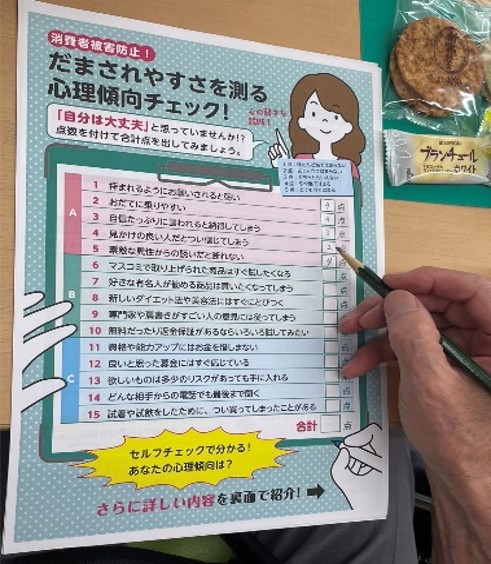 消費者被害防止！
だまされやすさを測る
心理傾向チェック！
「自分は大丈夫」と思っていませんか!?
点数を付けて合計点を出してみましょう。
A
1 拝まれるようにお願いされると弱い
2 おだてに乗りやすい
3 自信たっぷりに言われると納得してしまう
4 見かけの良い人だとつい信じてしまう
5 素敵な異性からの誘いだと断れない
B
6 マスコミで取り上げられた商品はすぐ試したくなる
7 好きな有名人が勧める商品は買いたくなってしまう
8 新しいダイエット法や美容法にはすぐとびつく
9 専門家や肩書きがすごい人の意見には従ってしまう
10 無料だったり返金保証があるならいろいろ試してみたい
C
11 資格や能力アップにはお金を惜しまない
12 良いと思った募金にはすぐ応じている
13 欲しいものは多少のリスクがあっても手に入れる
14 どんな相手からの電話でも最後まで聞く
15 試着や試飲をしたために、つい買ってしまったことがある
点
点
点
点
点
点
点
点
点
点
点
点
点
点
合計 点
セルフチェックで分かる！
あなたの心理傾向は？
さらに詳しい内容を裏面で紹介！
ブランチュール
ホワイト